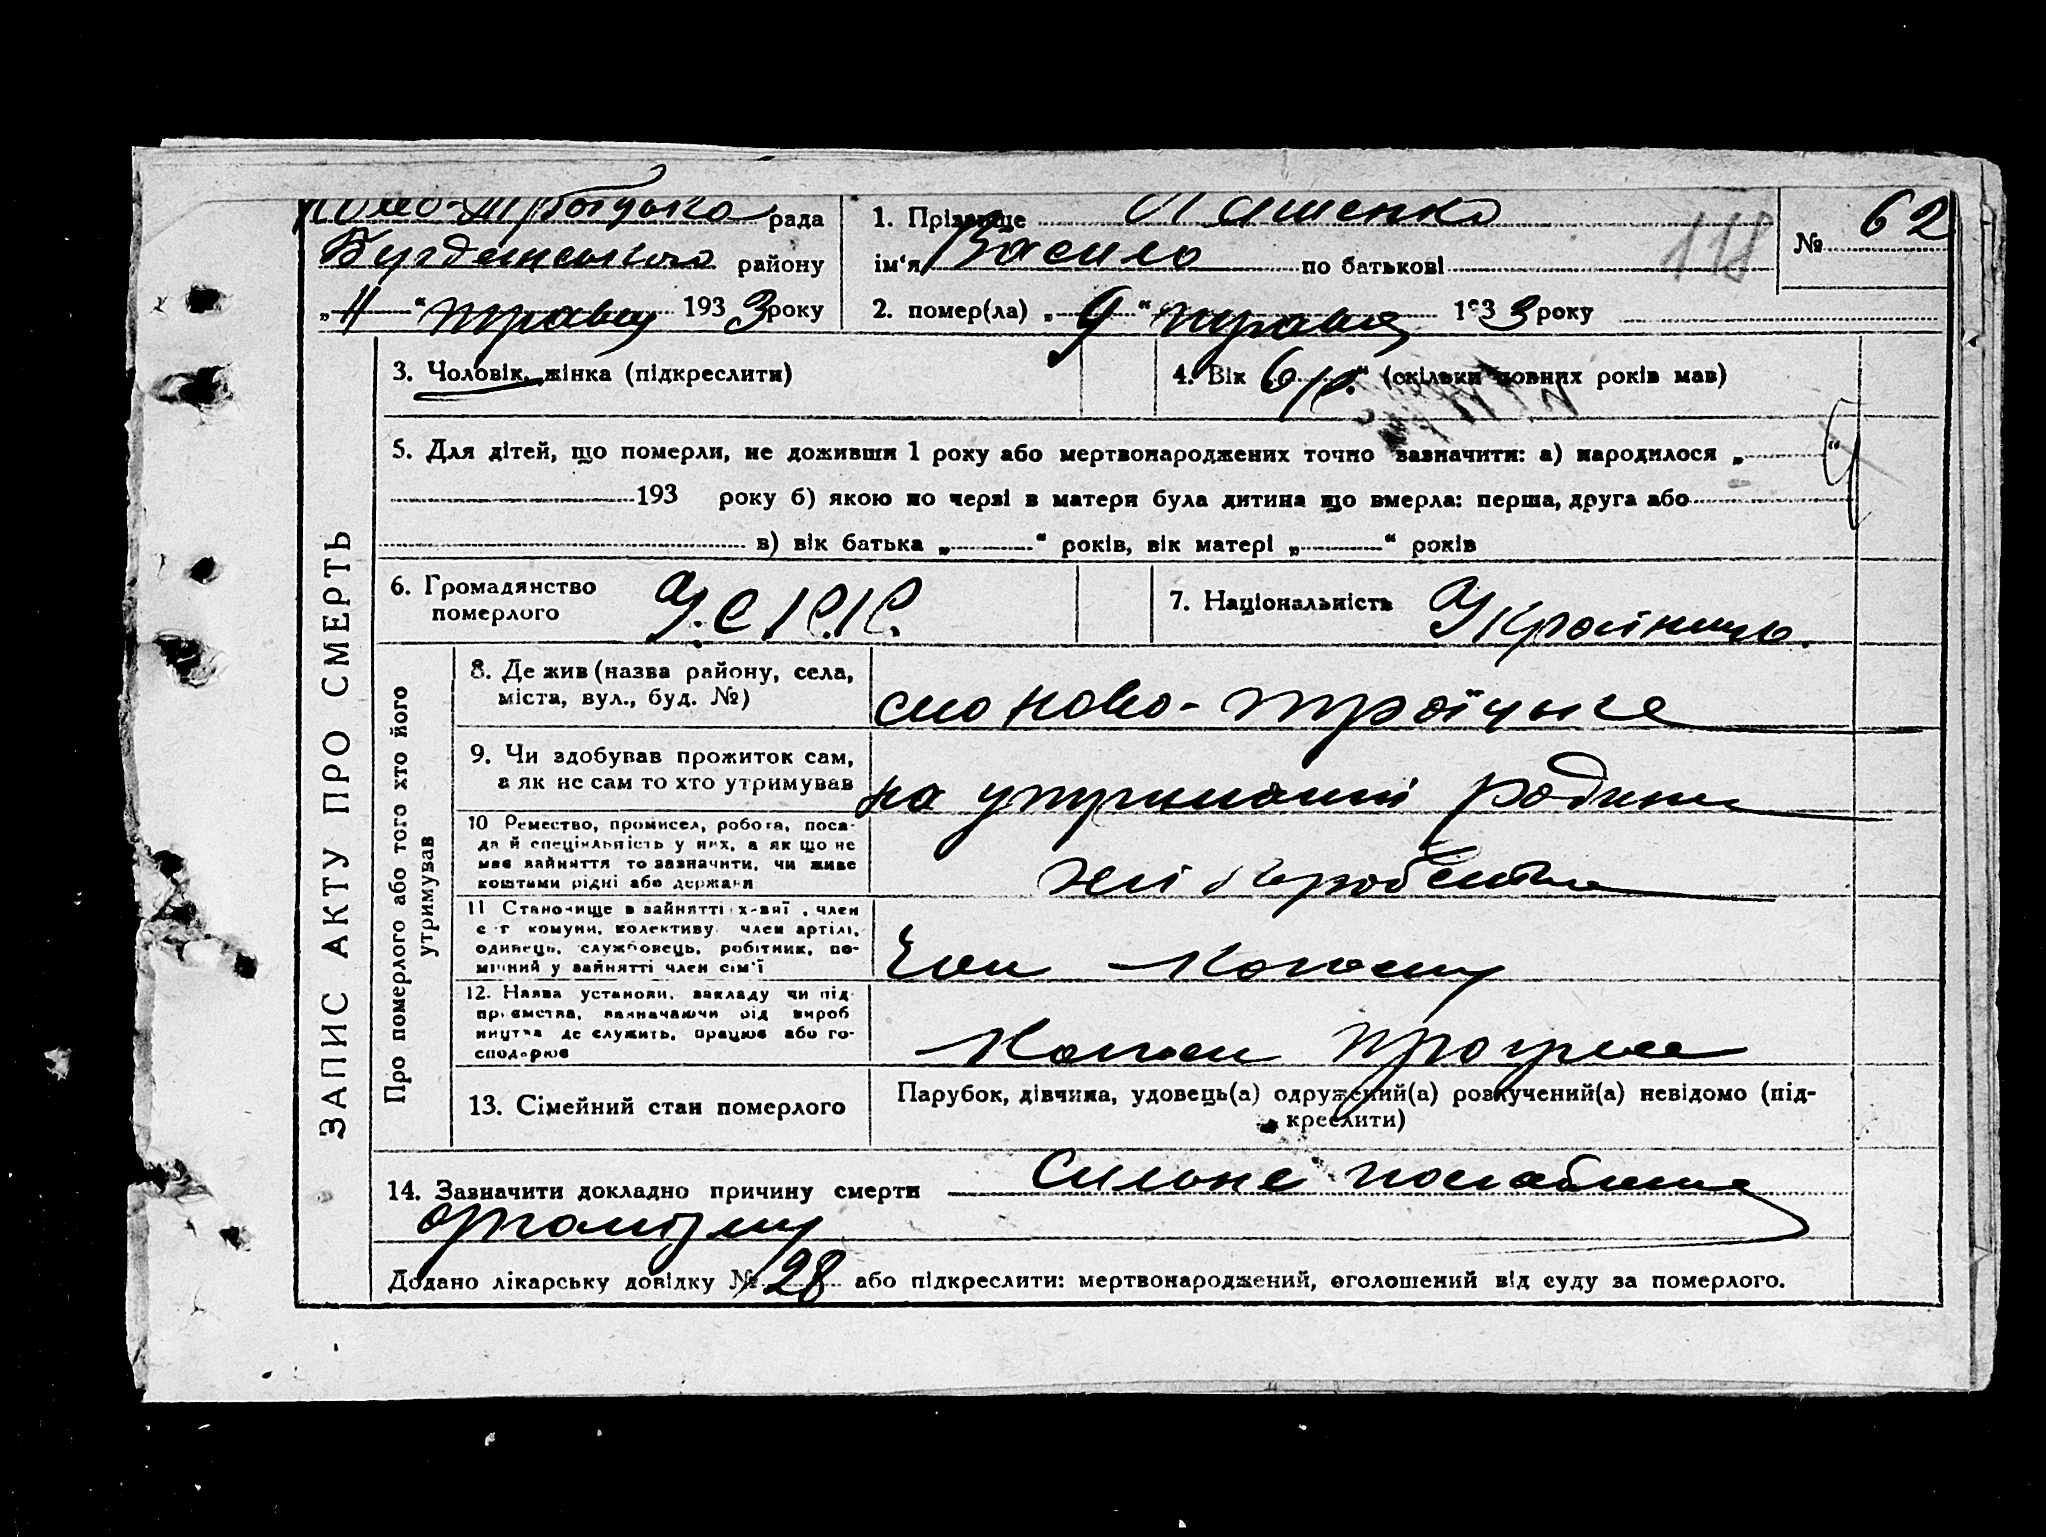 Ново-Троїцька рада
Бердянського району
„11“ травня 1933 року
1. Прізвище Пашенко
ім‘я Василь по батькові
№ 62
118
2. помер(ла) „9“ травня 1933 року
ЗАПИС АКТУ ПРО СМЕРТЬ
3. Чоловік, жінка (підкреслити)
4. Вік „6 р.“ (скільки повних років мав)
5. Для дітей, що померли, не доживши 1 року або мертвонароджених точно зазначити: а) народилося „ “
193 року б) якою по черзі в матери була дитина що вмерла: перша, друга або
в) вік батька „ “ років, вік матері „ “ років
6. Громадянство
померлого
У.С.Р.Р.
7. Національність Українець.
Про померлого або того хто його
утримував
8. Де жив (назва району, села,
міста, вул., буд. №)
село Ново-Троїцьке
9. Чи здобував прожиток сам,
а як не сам то хто утримував
на утриманні родини
10 Ремество, промисел, робота, поса-
да й спеціяльність у них, а як що не
має зайняття то зазначити, чи живе
коштами рідні або держави
хліборобство
11 Становище в зайнятті х-вні , член
с-г комуни, колективу член артілі,
одинець, службовець, робітник, по-
мічний у зайнятті член сім'ї
Член колгоспу
12. Назва установи, закладу чи під-
приємства, зазначаючи від вироб
ництва де служить, працює або го-
сподарює
Колгосп
13. Сімейний стан померлого
Парубок, дівчина, удовець(а) одружений(а) розлучений(а) невідомо (під-
креслити)
14. Зазначити докладно причину смерти Сильне послаблення
організму
Додано лікарську довідку № 28 або підкреслити: мертвонароджений, оголошений від суду за померлого.